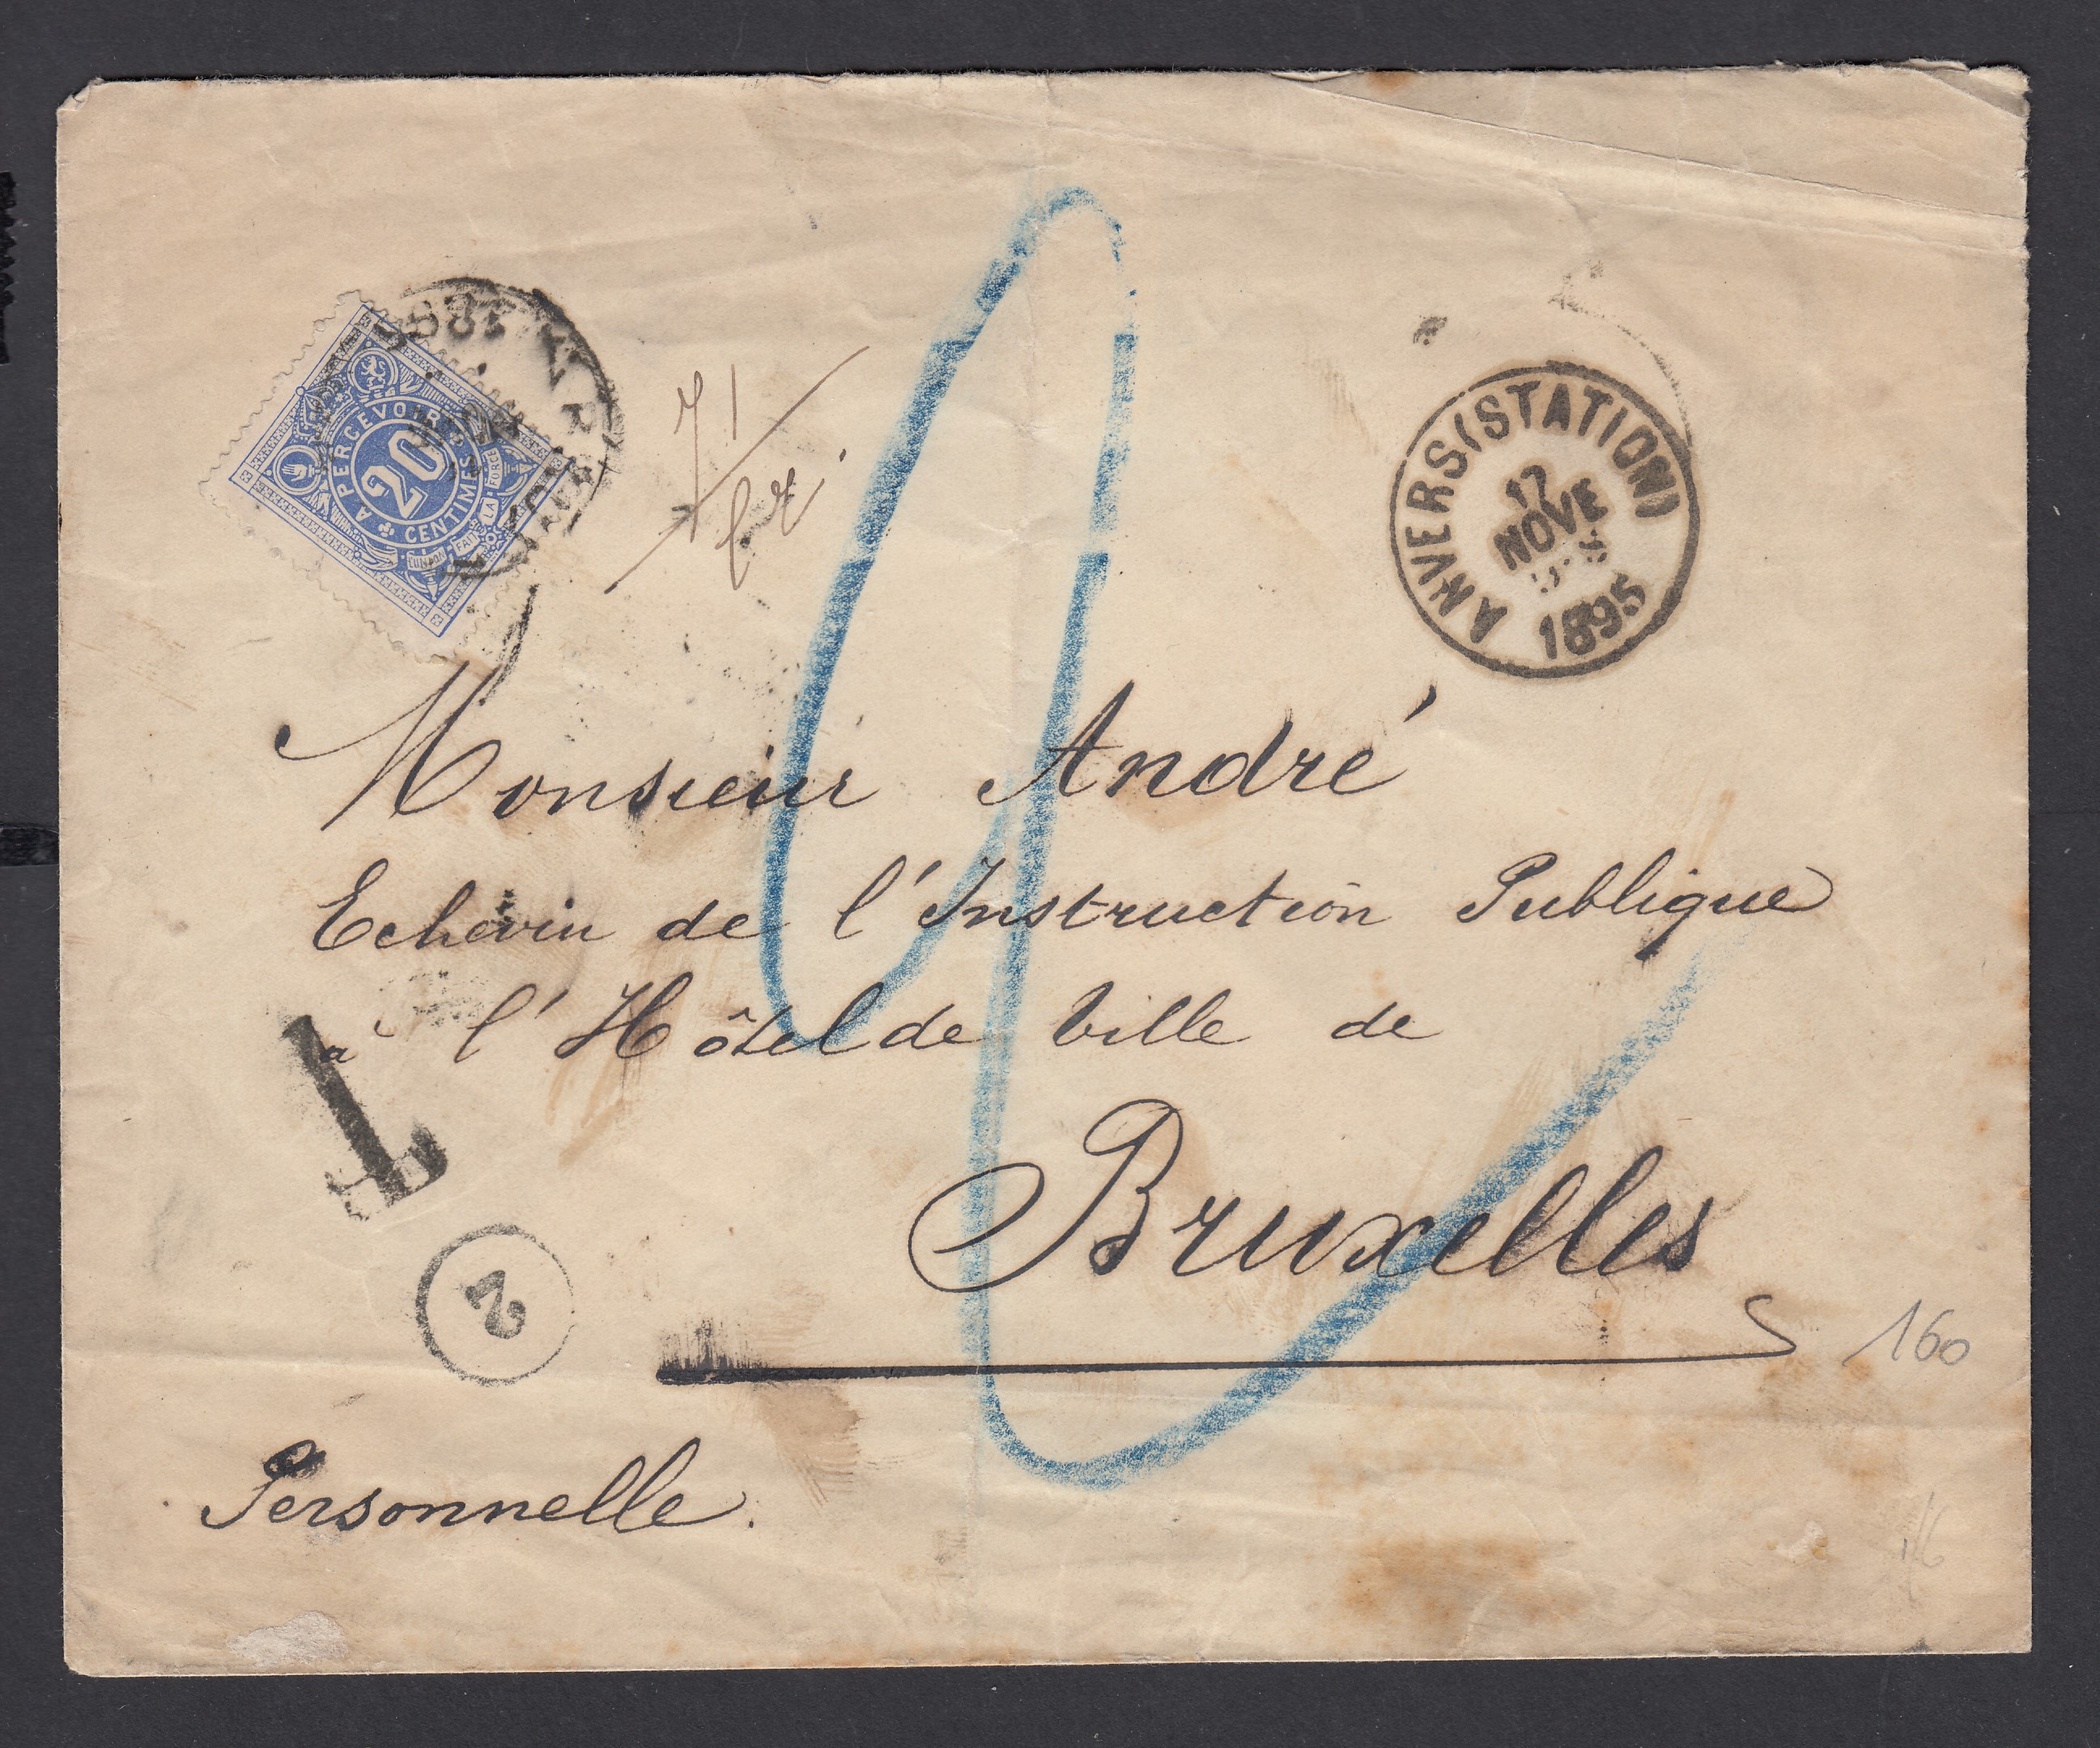 A PERCEVOIR
20
CENTIMES
L'UNION FAIT LA FORCE
1895
ANVERS (STATION)
17
NOVE
1895
Monsieur André
Echevin de l'Instruction Publique
à l'Hôtel de Ville de
Bruxelles
T
2
160
Personnelle.